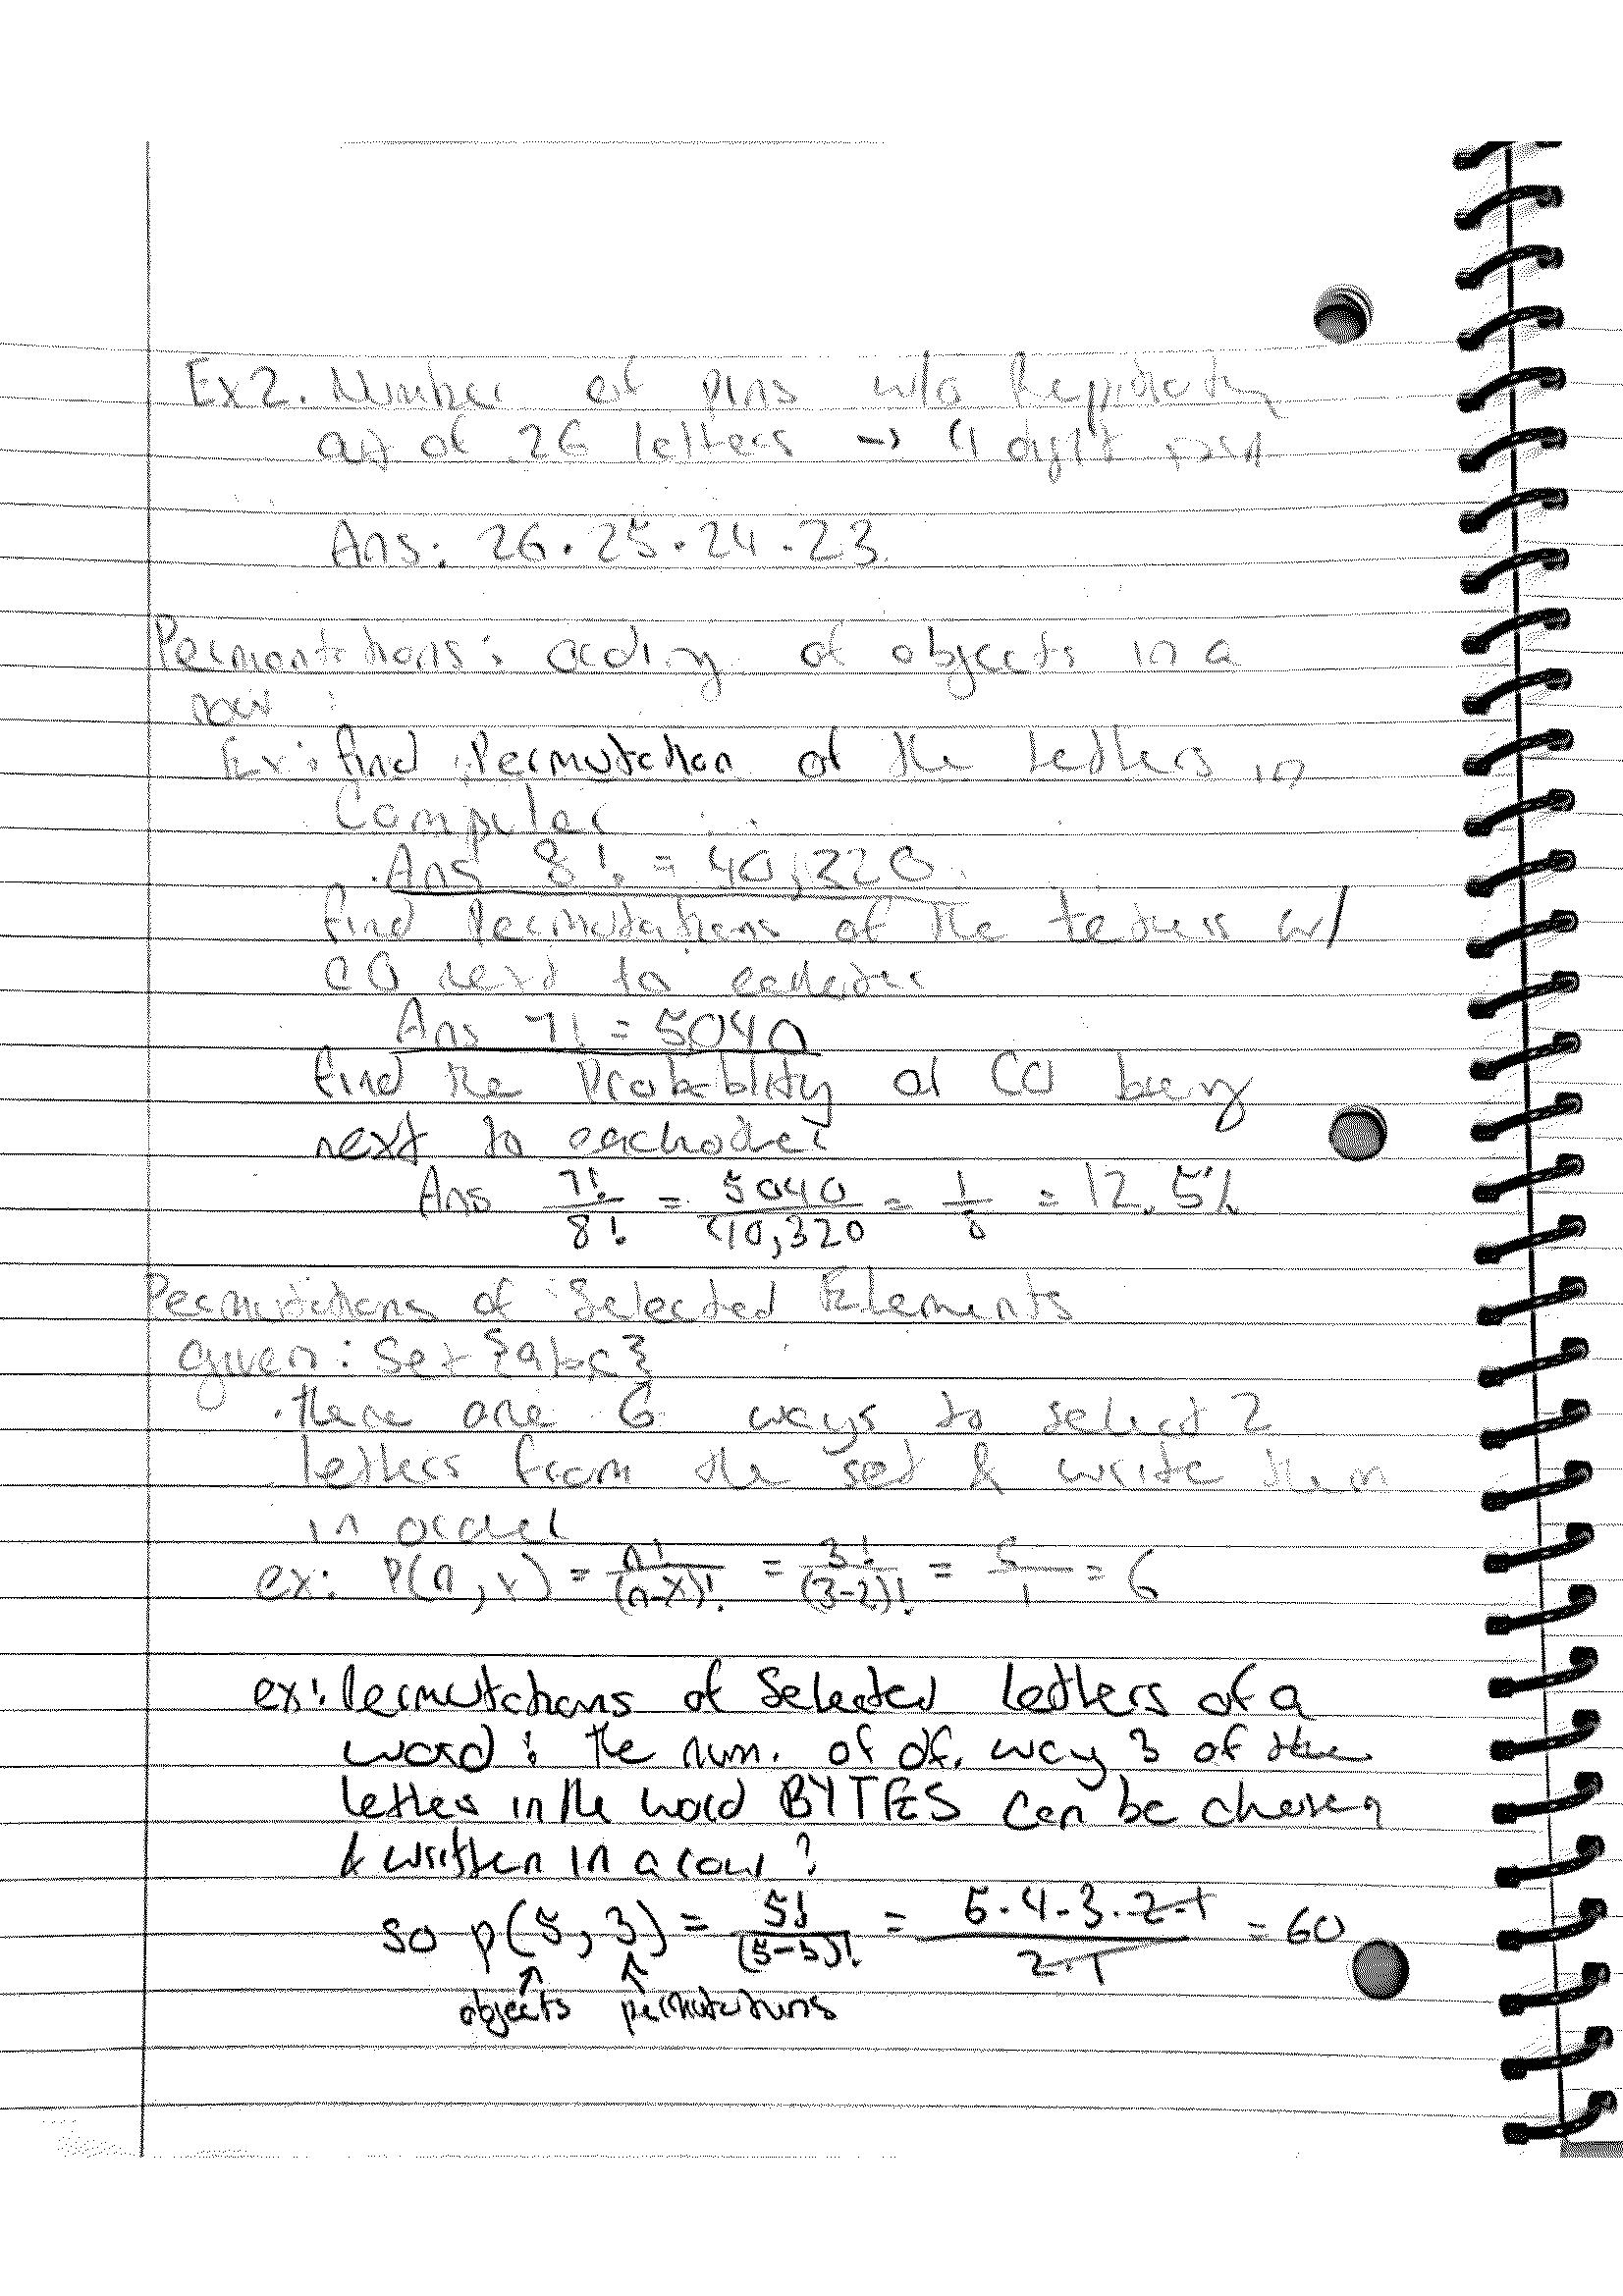 Ex2. Number of pins w/o
out of 26 letters → 4 digit
Ans: 26 · 25 · 24 · 23
of objects in a
row :
Ex: find Permutation of the Letters in
Computer
Ans 8! = 40,320
find Permutations of the letters w/
CO next to
Ans 7! = 5040
find the Probablity of CO being
next to eachother
Ans 7!/8! = 5040/40,320 = 1/8 = 12.5%
Permutations of Selected Elements
given: Set {abc}
· there are 6 ways to select 2
letters from the set & write them
in order
ex: P(n, r) = n!/(n-r)! = 3!/(3-2)! = /1 = 6
ex: Permutations of Selected Letters of a
word : the num. of df. way 3 of the
letters in the word BYTES can be chosen
& written in a row ?
so p(5, 3) = 5!/(5-3)! = 5·4·3·2·1/2·1 = 60
objects permutations